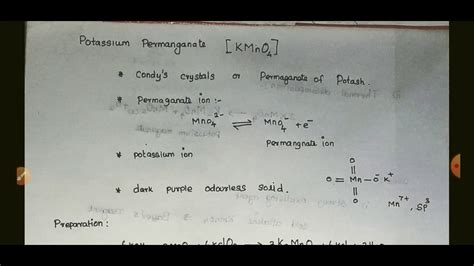 Potassium Permanganate [KMnO₄]
* Condy's crystals or Permaganate of Potash.
* Permaganate ion :-
MnO₄²⁻ ⇌ MnO₄⁻ + e⁻
Permangnate ion
* potassium ion
* dark purple odourless solid.
O
||
O = Mn - O⁻ K⁺
||
O
Mn⁷⁺, SP³
Preparation: